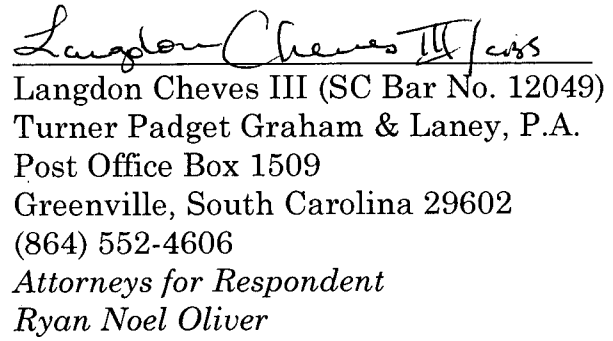 Langdon Cheves III/
Langdon Cheves III (SC Bar No. 12049)
Turner Padget Graham & Laney, P.A.
Post Office Box 1509
Greenville, South Carolina 29602
(864) 552-4606
Attorneys for Respondent
Ryan Noel Oliver